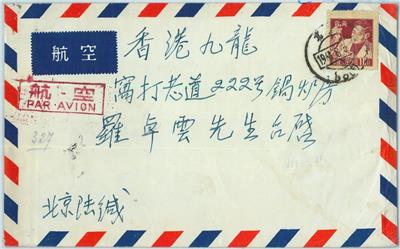 航空
香港九龍
航-空
PAR AVION
窩打老道222号鍋炉房
羅卓雲先生台啓
327
北京陆缄